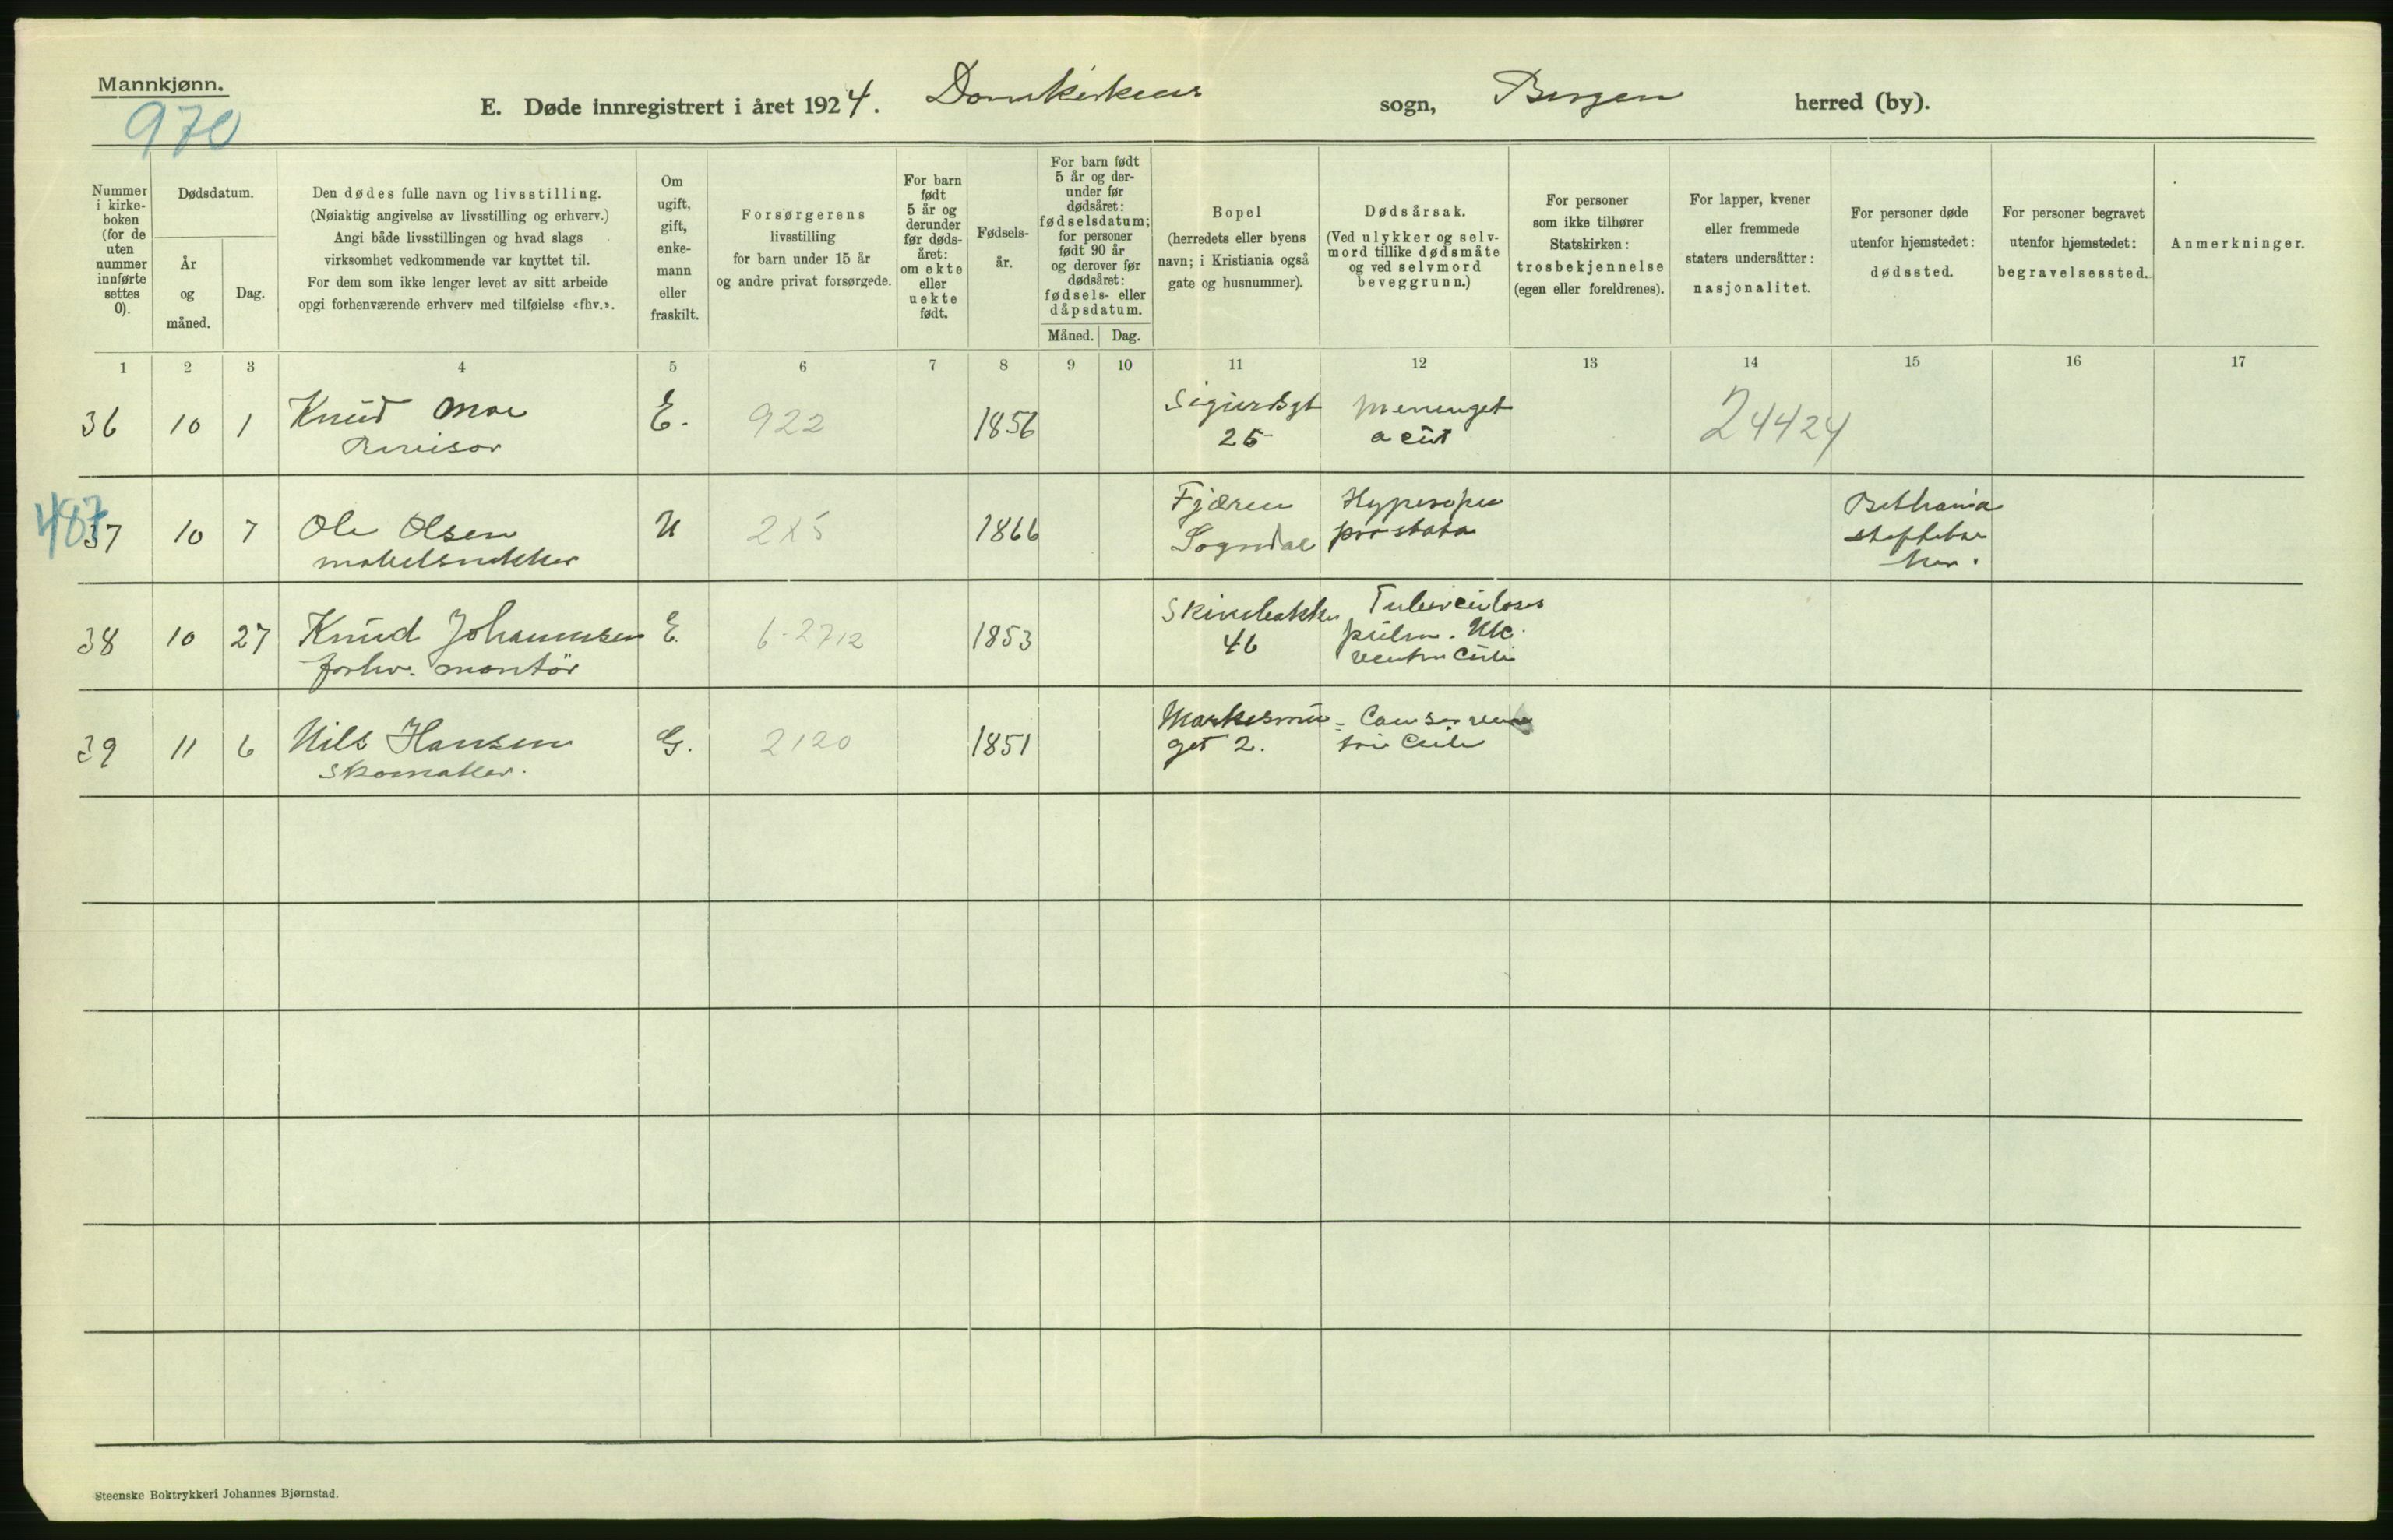 Mannkjønn.
970
E. Døde innregistrert i året 1924. Domkirkens sogn, Bergen herred (by).
Nummer i kirke- boken (for de uten nummer innførte settes 0).
Dødsdatum.
År og måned.
Dag.
Den dødes fulle navn og livsstilling.
(Nøiaktig angivelse av livsstilling og erhverv.)
Angi både livsstillingen og hvad slags
virksomhet vedkommende var knyttet til.
For dem som ikke lenger levet av sitt arbeide
opgi forhenværende erhverv med tilføielse «fhv.».
Om ugift, gift, enke- mann eller fraskilt.
Forsørgerens
livsstilling
for barn under 15 år
og andre privat forsørgede.
For barn født 5 år og derunder før døds- året: om ekte eller uekte født.
Fødsels- år.
For barn født 5 år og der- under før dødsåret: fødselsdatum; for personer født 90 år og derover før dødsåret: fødsels- eller dåpsdatum.
Måned. Dag.
Bopel
(herredets eller byens
navn; i Kristiania også
gate og husnummer).
Dødsårsak.
(Ved ulykker og selv-
mord tillike dødsmåte
og ved selvmord
beveggrunn.)
For personer
som ikke tilhører
Statskirken:
trosbekjennelse
(egen eller foreldrenes).
For lapper, kvener
eller fremmede
staters undersåtter:
nasjonalitet.
For personer døde
utenfor hjemstedet:
dødssted.
For personer begravet
utenfor hjemstedet:
begravelsessted.
Anmerkninger.
1 2 3 4 5 6 7 8 9 10 11 12 13 14 15 16 17
36 10 1 Knud Moe E. 922 1856 Sigurdsgt 24424
Revisor 25 acut
487
37 10 7 Ole Olsen U 1866 Fjæren Bethania
møbelsnekker Sogndal prostata stiftelse
her.
38 10 27 Knud Johannesen E. 6-2712 1853 Skivebakken Tuberculosis
forhv. montør 46 pulm. Ulc.
ventriculi
39 11 6 Nils Hansen G. 2120 1851 Markesmu- Cancer ven
skomaker. get 2. triculi
Steenske Boktrykkeri Johannes Bjørnstad.